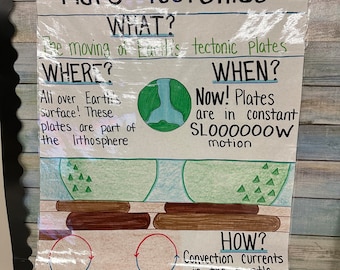 WHAT?
The moving of Earth's tectonic plates
WHERE?
All over Earth's
surface! These
plates are part of
the lithosphere
WHEN?
Now! Plates
are in constant
SLOOOOOOW
motion
HOW?
Convection currents